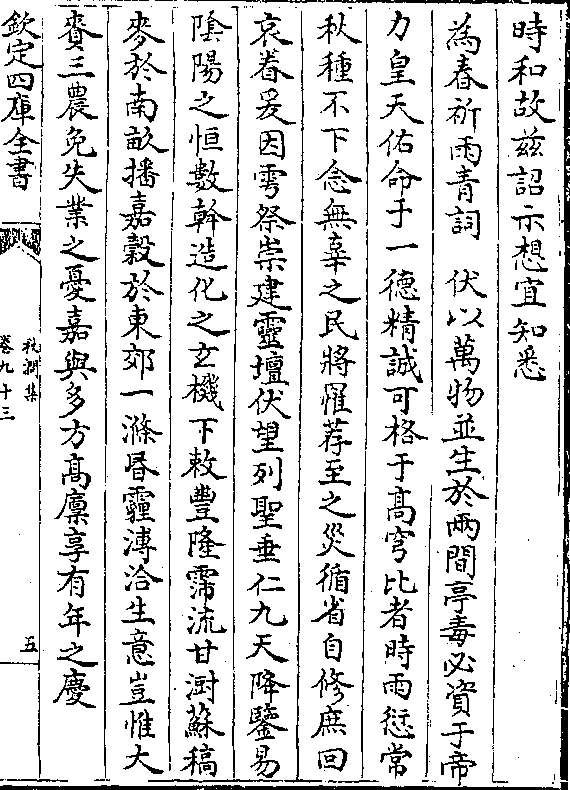 時和故兹詔示想宜知悉
為春祈雨青詞　伏以萬物並生於兩間亭毒必資于帝
力皇天佑命于一德精誠可格于髙穹比者時雨愆常
秋種不下念無辜之民將罹荐至之災循省自修庶回
哀眷爰因雩祭崇建靈壇伏望列聖垂仁九天降鑒易
隂陽之恒數斡造化之玄機下敕豐隆霈流甘澍蘇稿
麥於南畝播嘉穀於東郊一滌昬霾溥洽生意豈惟大
賚三農免失業之憂嘉與多方髙廩享有年之慶
欽定四庫全書
卷九十三
五